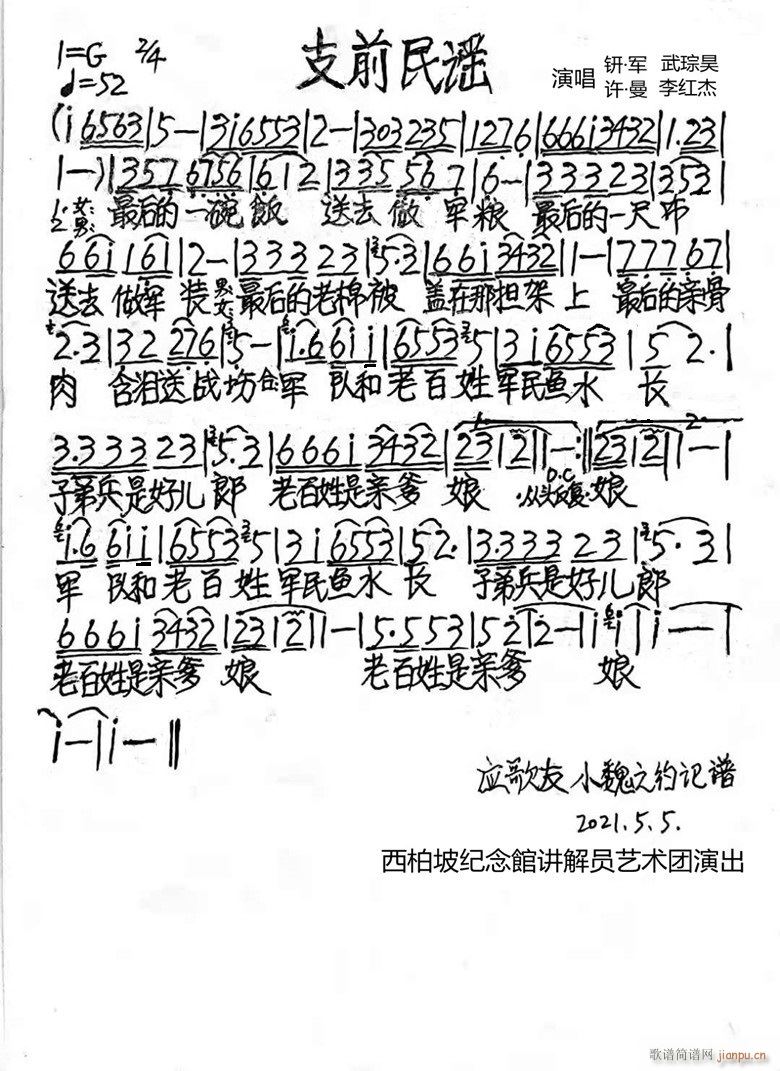 支前民谣
1=G 2/4
♩=52
演唱 钘·军 武琮昊
许·曼 李红杰
(i 6563|5—|3i6553|2—|303235|1276|666i3432|1.23|
1—)|357 6756|612|335 567|6—|33323|353|
1.女: 2.男: 最后的一碗飯 送去做 军粮 最后的一尺布
66i 161|2—|333 23|5.3|66i 3432|1—|777 67|
送去 做军 装 男: 女: 最后的老棉被 盖在那担架上 最后的亲骨
2.3|32 276|5—|i.6 6ii|6553 5|3i6553|5 2.|
肉 含泪送战场 合:军 队和老百姓军民鱼水 长
3.333 23|5.3|666i 3432|23 12|1—:‖23 12|1—|
子弟兵是好儿郎 老百姓是亲爹 娘 D.C 从头反复 娘
i.6 6ii|6553 5|3i6553|52.|3.333 23|5.3|
军 队和老百姓军民鱼水 长 子弟兵是好儿郎
666i 3432|23 12|1—|5.553|52|2—|i i|i—|
老百姓是亲爹 娘 老百姓是亲爹 娘
i—|i—‖
应歌友小魏之约记谱
2021.5.5.
西柏坡纪念館讲解员艺术团演出
歌谱简谱网 jianpu.cn